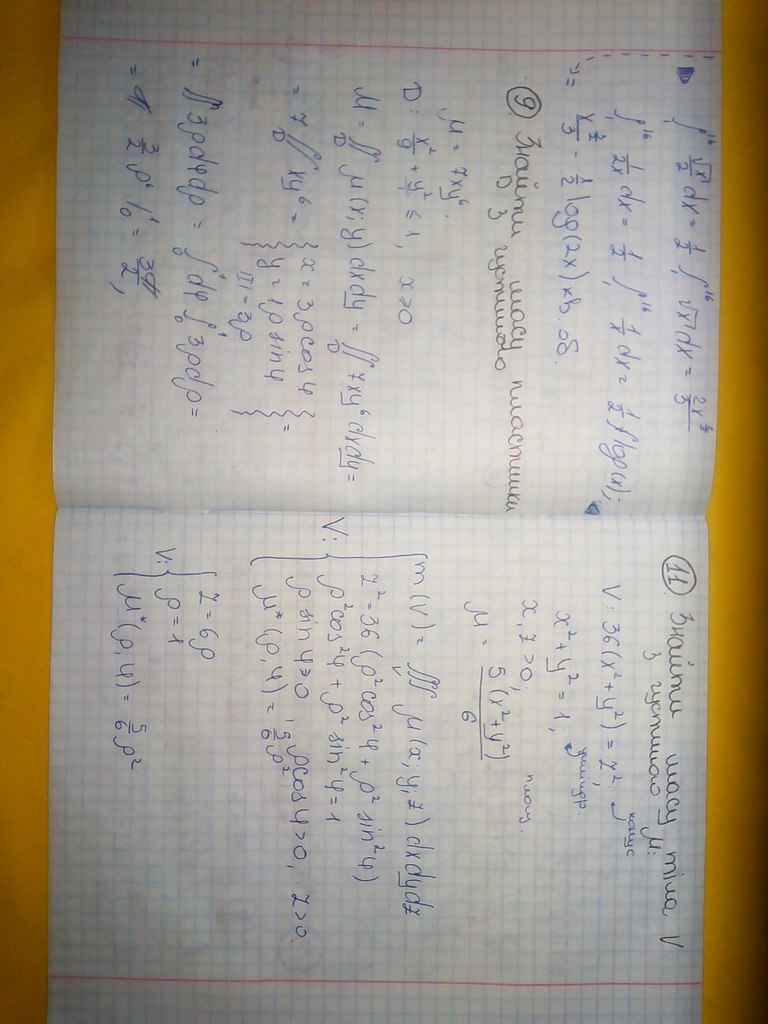 ∫₁¹⁶ √x/2 dx = 1/2 ∫₁¹⁶ √x dx =
∫₁¹⁶ 1/2x dx = 1/2 ∫₁¹⁶ 1/x dx = 1/2 log(x);
log(2x) кв. од.
⑨ Знайти масу пластинки
D з густиною
μ = 7xy⁶.
D: x²/9 + y²/1 ≤ 1, x≥0
M = ∬_D μ(x;y)dxdy = ∬_D 7xy⁶dxdy =
= 7∬_D xy⁶ = { x = 3ρcosφ
y = 1ρ sinφ
|I| = 3ρ } =
= ∬ 3ρdφdρ = ∫ dφ ∫₀¹ 3ρdρ =
= π 3/2 ρ² |₀¹ = 3π/2,
⑪ Знайти масу тіла V
з густиною μ:
V: 36(x²+y²) = z²; конус
x²+y² = 1; циліндр.
x, z ≥ 0; площ.
μ = 5(x²+y²)/6
m(V) = ∭_V μ(x; y; z)dxdydz
V: { z² = 36(ρ²cos²φ + ρ²sin²φ)
ρ²cos²φ + ρ²sin²φ = 1
ρ sinφ ≥ 0, ρcosφ ≥ 0, z ≥ 0.
μ*(ρ, φ) = 5/6 ρ²
V: { z = 6ρ
ρ = 1
μ*(ρ, φ) = 5/6 ρ²